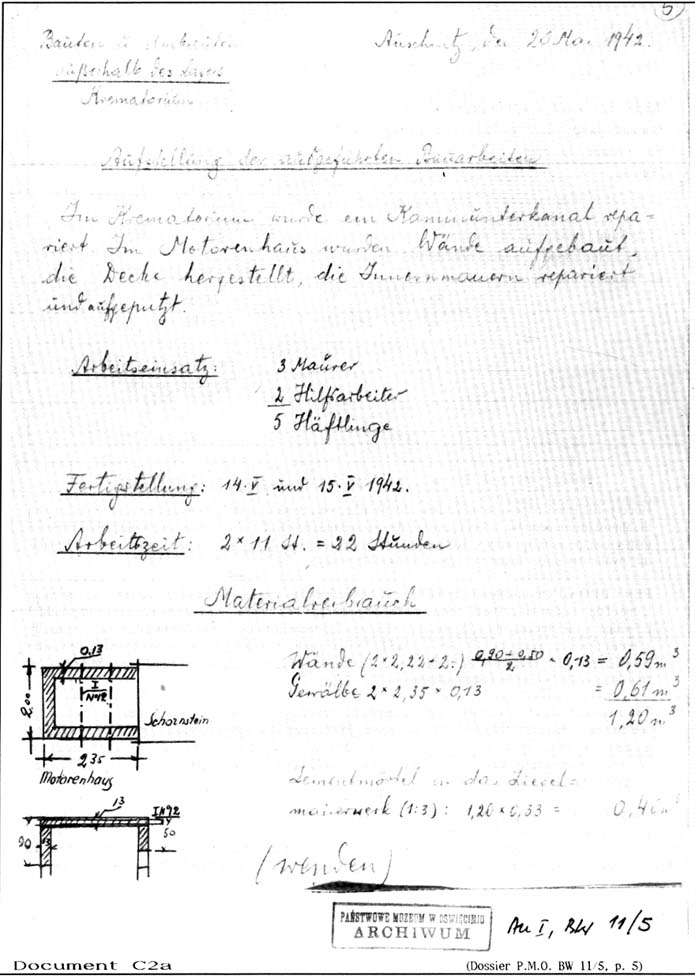 5
Bauten u. Umbauten
außerhalb des Lagers
Krematorium
Auschwitz, den 26 Mai 1942.
Aufstellung der ausgeführten Bauarbeiten
Im Krematorium wurde ein Kaminunterkanal repa=
riert. Im Motorenhaus wurden Wände aufgebaut,
die Decke hergestellt, die Innenmauern repariert
und aufgeputzt.
Arbeitseinsatz: 3 Maurer
2 Hilfsarbeiter
5 Häftlinge
Fertigstellung: 14. V und 15. V 1942.
Arbeitszeit: 2 × 11 St. = 22 Stunden
Materialverbrauch
0,13
2.00
I
Schornstein
2.35
Motorenhaus
13
90
13
50
Wände (2×2,22+2.) (0,90+0,50)/2 × 0,13 = 0,59 m³
Gewölbe 2 × 2,35 × 0,13 = 0,61 m³
1,20 m³
Zementmörtel in das Ziegel=
mauerwerk (1:3): 1,20 × 0,33 = 0,40 m³
(wenden)
PAŃSTWOWE MUZEUM W OŚWIĘCIMIU
ARCHIWUM
Au I, BW 11/5
Document C2a
(Dossier P.M.O. BW 11/5, p. 5)